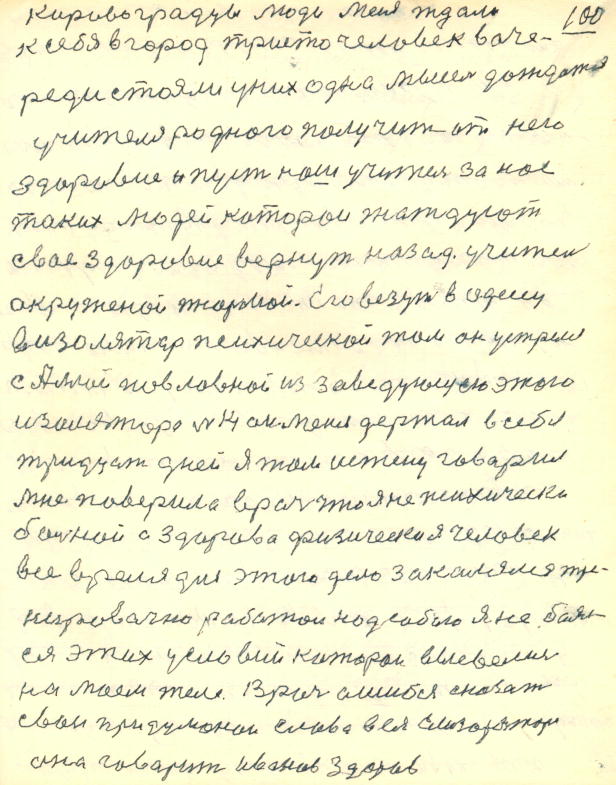 100
кировоградцы люди меня ждали
к себя в город триста человек в оче-
реди стояли у них одна мысел дождатся
учителя родного получит от него
здоровие и пуст наш учител за нас
таких людей которои жаждуют
свое здоровие вернут назад. учител
окруженой тюрмой. Его везут в одесу
в изолятор психической там он устрел
с Аллой повловной из заведующею этого
изолятора N 14 он меня держал в себя
тридцат дней я там истену говарил
мне поверила врач что я не психически
болной а здарова физический человек
все время для этого дело закалялся тре-
нировачно работои над собою я не бою-
ся этих условий которои
на моем теле. Врач ошибся сказат
свои придумонои слова вся
она говарит иванов здоров